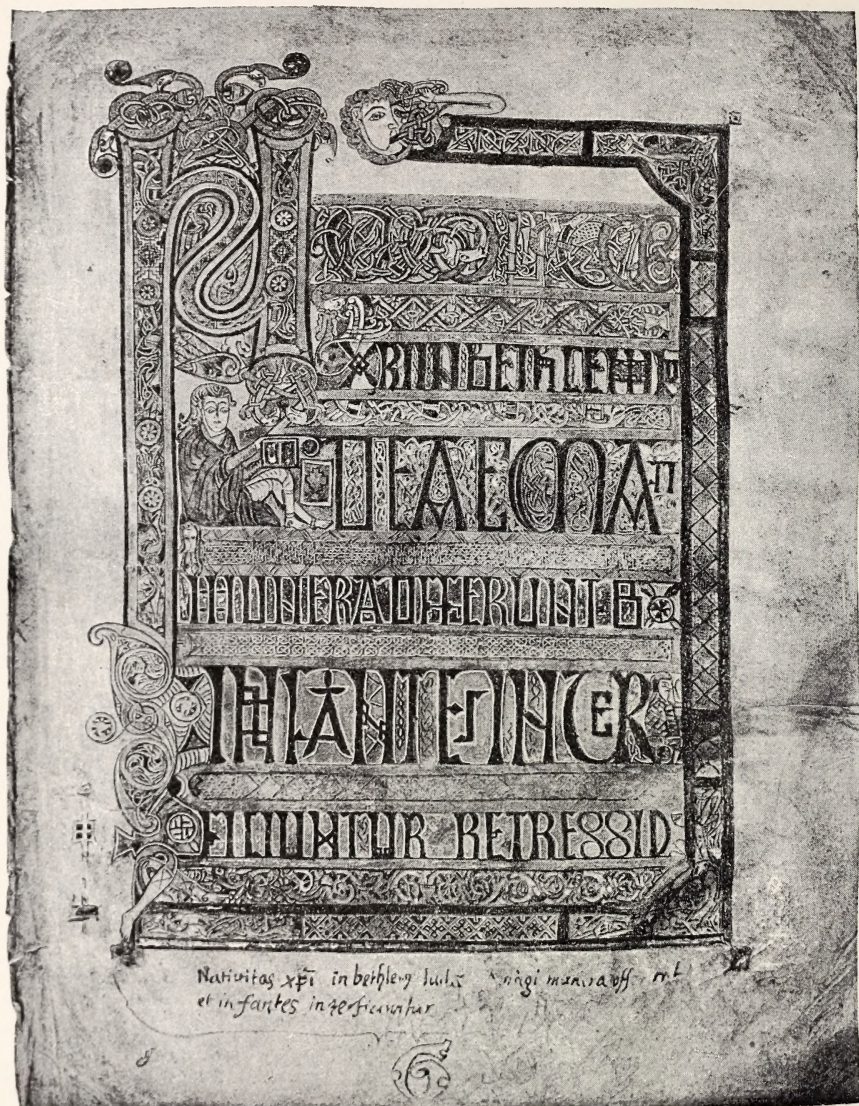 NATIVITAS
XPI IN BETHLEM IU
DEAE MA
MUNERA OFFERUNT &
INFANTES INTER
FICIUNTUR REGRESSIO
Nativitas xp̄i in bethlem magi munera off
et infantes interficiuntur
8